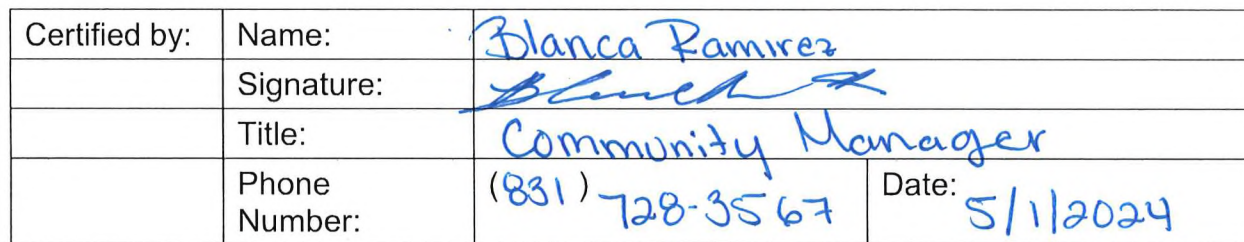 Certified by: Name: Blanca Ramirez
Signature:
Title: Community Manager
Phone Number: (831) 728-3567 Date: 5/1/2024